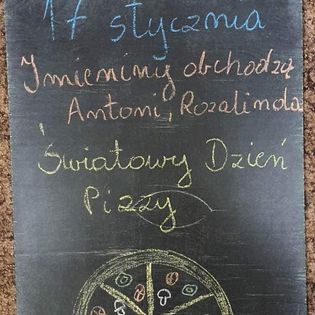 17 stycznia
Imieniny obchodzą
Antoni, Rozalinda
Światowy Dzień
Pizzy